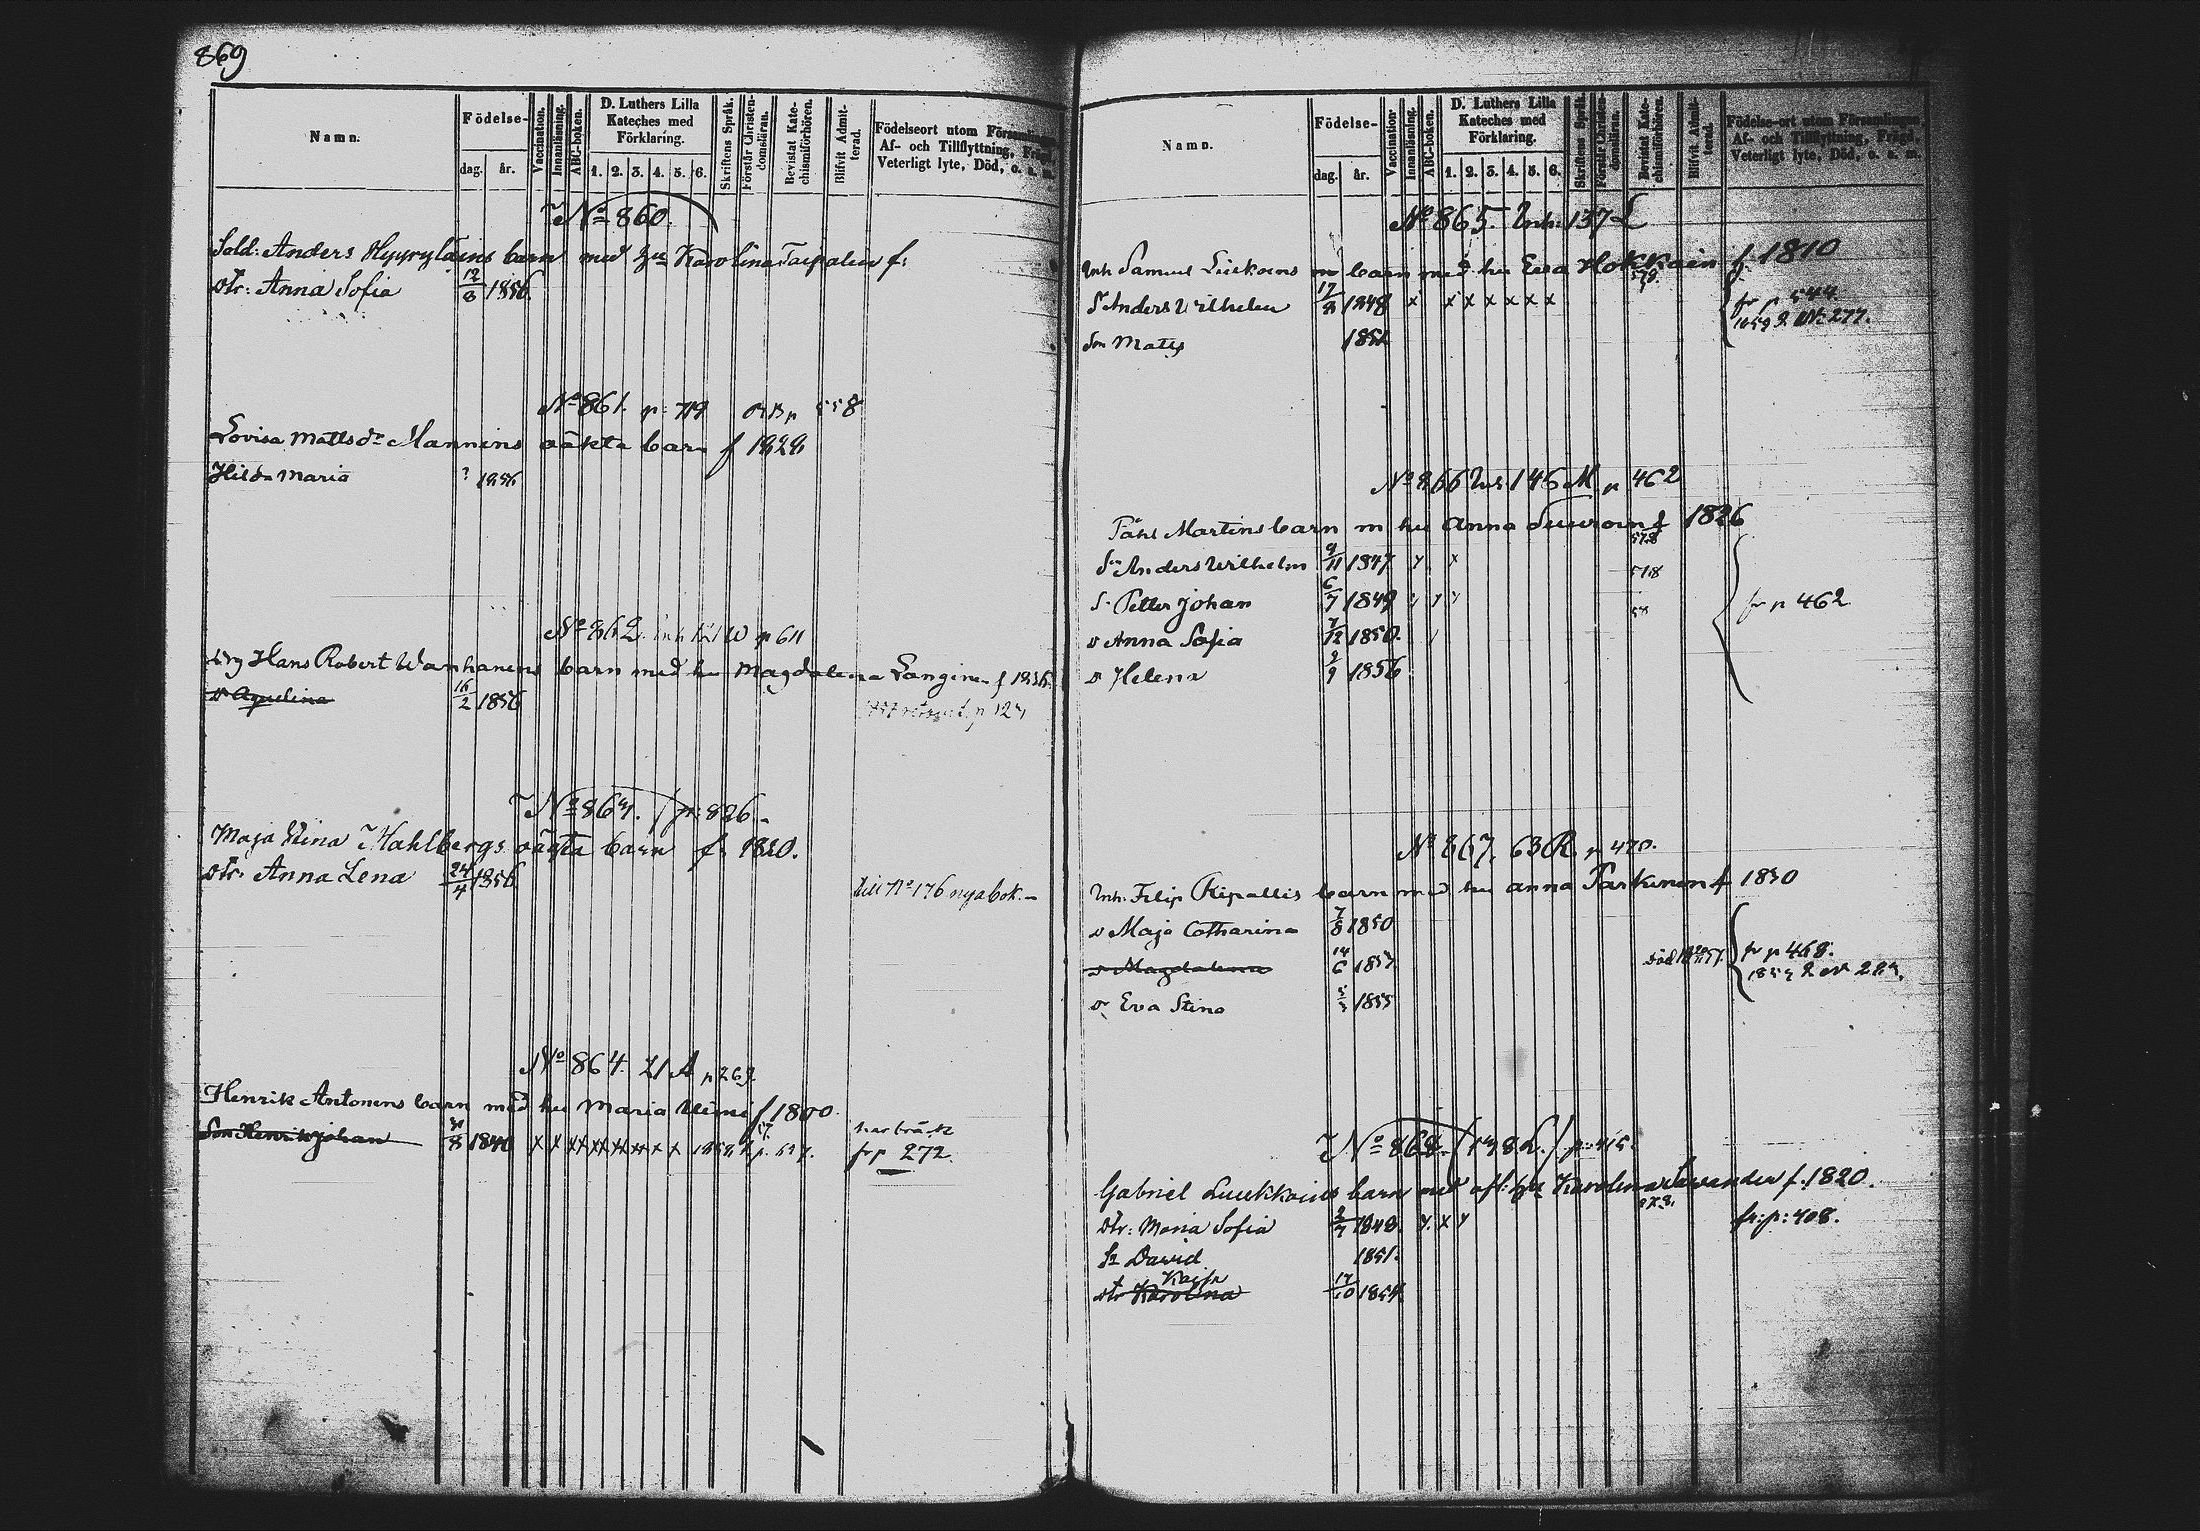 869
Namn.
Födelse-
dag. år.
Vaccination.
Innanläsning.
ABC-boken.
D. Luthers Lilla
Kateches med
Förklaring.
1. 2. 3. 4. 5. 6.
Skriftens Språk.
Förstår Christendomsläran.
Bevistat Katechismiförhören.
Blifvit Admitterad.
Födelseort utom Församlingen
Af- och Tillflyttning, Frägd,
Veterligt lyte, Död, o. s. m.
No 860.
Sold: Anders Hyyryläins barn med hu Karolina Taipalin f:
dtr: Anna Sofia 12/8 1856.
No 861. p: 719 p 558
Lovisa Mattsdr Mannins oäkta barn f 1828
Hilda Maria ? 1856
No 862. W p 611
Hans Robert Wanhanens barn med hu Magdalena Langinen f 1836
d Aqvelina 16/2 1856
No 863. p: 826.
Maja Stina Hahlbergs oägta barn f: 1820.
dtr: Anna Lena 24/4 1856 till No 176 nya bok.
No 864. 21 A p 269.
Henrik Antonens barn med hu Maria f 1800
Son Henrik Johan 8 1840 x x xx xx xx xx x x
fr p 272.
Namn.
Födelse-
dag. år.
Vaccination.
Innanläsning.
ABC-boken.
D. Luthers Lilla
Kateches med
Förklaring.
1. 2. 3. 4. 5. 6.
Skriftens Språk.
Förstår Christendomsläran.
Bevistat Katechismiförhören.
Blifvit Admitterad.
Födelse-ort utom Församlingen
Af- och Tillflyttning, Frägd,
Veterligt lyte, Död, o. s. m.
No 865. Inh: 137 L
Inh Samuel Liukoins m barn med hu Eva Hokkain f. 1810
S Anders Wilhelm 17/2 1848 x x x x x x x fr p 544.
1859 No 277.
Son Matts 1851
No 866 146 M p 462
Påhl Martins barn m hu Anna Suuroin f 1826
578
Sn Anders Wilhelm 9/11 1847 x x
578
S. Petter Johan 6/7 1849 fr p 462
58
d Anna Sofia 7/12 1850.
d Helena 2/9 1856
No 867. 63 R. p 470.
Inh. Filip Ripattis barn med hu Anna Parkinen f 1830
d Maja Catharina 7/8 1850
d Magdalena 14/6 1853 död fr p 468.
d Eva Stina 5/3 1855
No 868. p: 415.
Gabriel Luukkoins barn med afl: hu Karolina f. 1820.
dtr: Maria Sofia 1848. fr: p: 408.
Sn David 1851.
Kajsa
dtr Karolina 17/10 1854